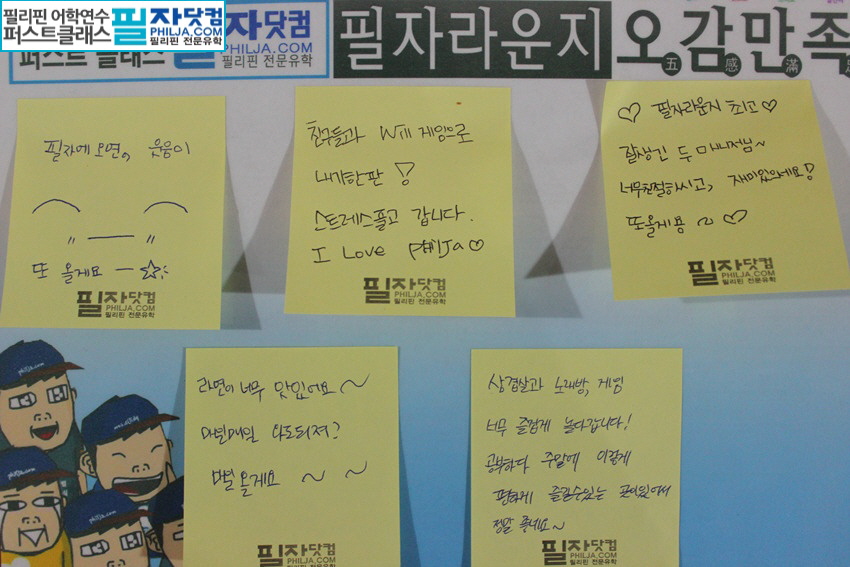 필리핀 어학연수
퍼스트클래스
필자닷컴
PHILJA.COM
필리핀 전문유학
퍼스트 클래스
필자닷컴
PHILJA.COM
필리핀 전문유학
필자라운지 오감만족
五 感 滿 足
필자에 오면, 웃음이
또 올게요
필자닷컴
PHILJA.COM
필리핀 전문유학
친구들과 Wii 게임으로
내기한판!
스트레스풀고 갑니다.
I Love PhilJa♡
필자닷컴
PHILJA.COM
필리핀 전문유학
♡ 필자라운지 최고♡
잘생긴 두 매니저님~
너무친절하시고, 재미있으세요!
또올게용 ~ ♡
필자닷컴
PHILJA.COM
필리핀 전문유학
라면이 너무 맛있어요~
매일매일 와도되죠?
매일 올게요 ~ ~
필자닷컴
PHILJA.COM
필리핀 전문유학
삼겹살과 노래방, 게임
너무 즐겁게 놀다갑니다!
공부하다 주말에 이렇게
편하게 즐길수있는 곳이있어서
정말 좋네요~
필자닷컴
PHILJA.COM
필리핀 전문유학
philja.com
philja.com
philja.com
philja.com